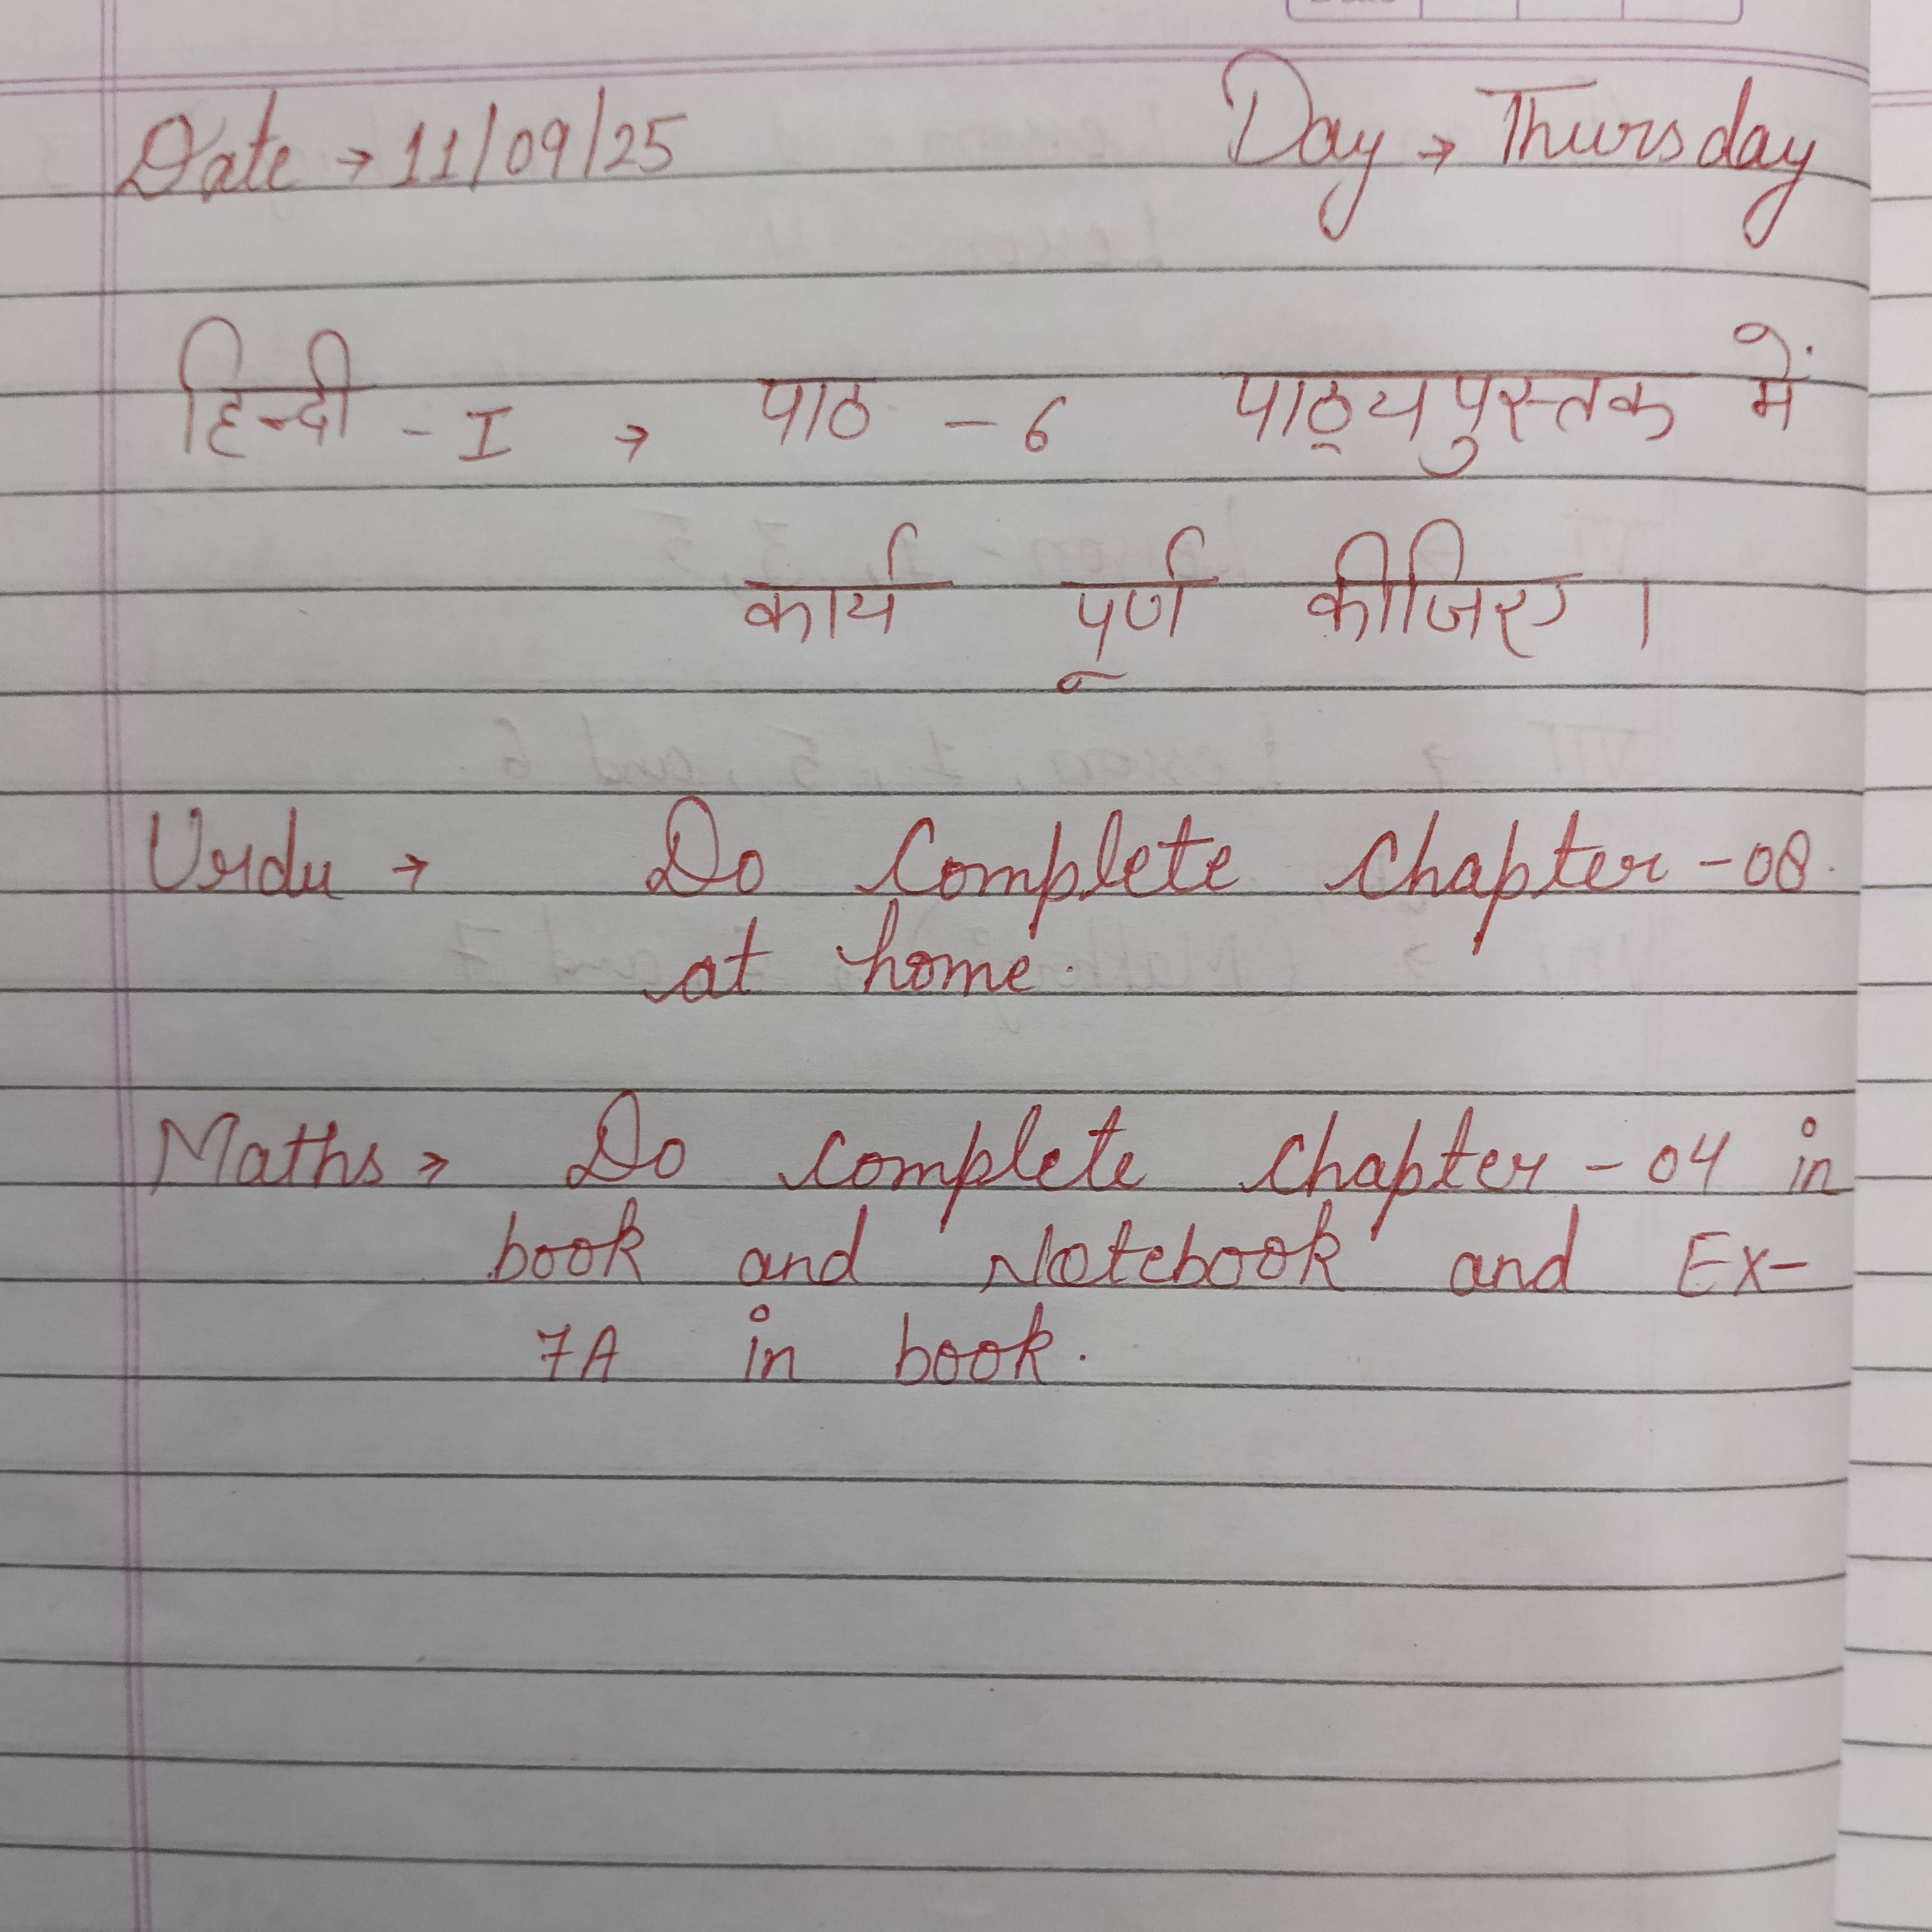 Date → 11/09/25 Day → Thursday
हिन्दी - I → पाठ - 6 पाठ्यपुस्तक में
कार्य पूर्ण कीजिए।
Urdu → Do Complete Chapter - 08.
at home.
Maths → Do complete chapter - 04 in
book and Notebook and Ex-
7A in book.